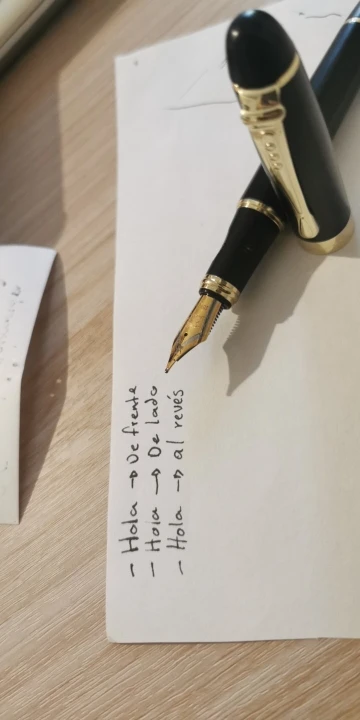 - Hola → De frente
- Hola → De lado
- Hola → al revés